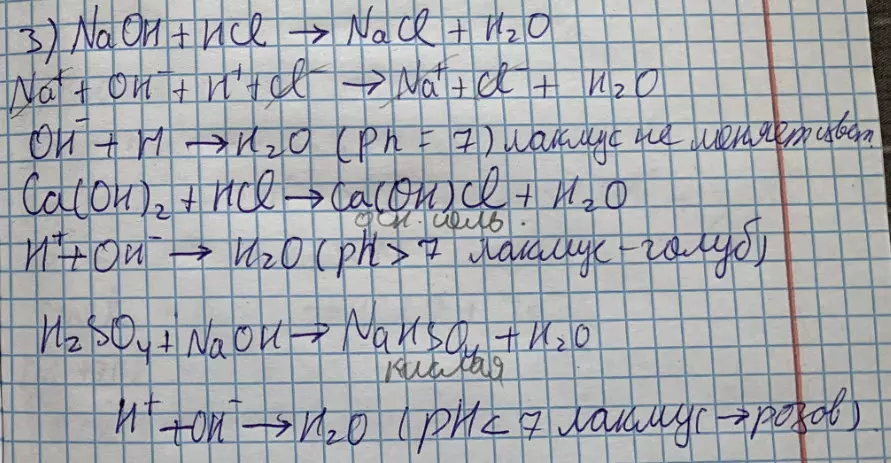 3) NaOH + HCl → NaCl + H₂O
Na⁺ + OH⁻ + H⁺ + Cl⁻ → Na⁺ + Cl⁻ + H₂O
OH⁻ + H → H₂O (ph = 7) лакмус не меняет цвет.
Ca(OH)₂ + HCl → Ca(OH)Cl + H₂O
осн. соль.
H⁺ + OH⁻ → H₂O (pH > 7 лакмус - голуб)
H₂SO₄ + NaOH → NaHSO₄ + H₂O
кислая
H⁺ + OH⁻ → H₂O (pH < 7 лакмус → розов)